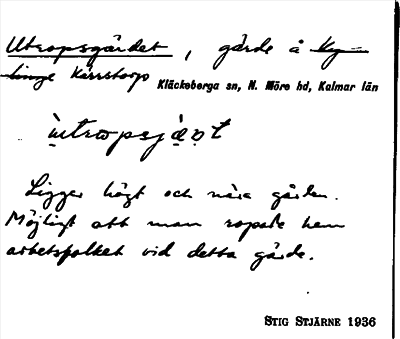 Utropsgärdet, gärde å Ky-
linge Kärrstorp
Kläckeberga sn, N. Möre hd, Kalmar län
ùtropsjæ̣ṛt
Ligger högt och nära gården.
Möjligt att man ropade hem
arbetsfolket vid detta gärde.
STIG STJÄRNE 1936